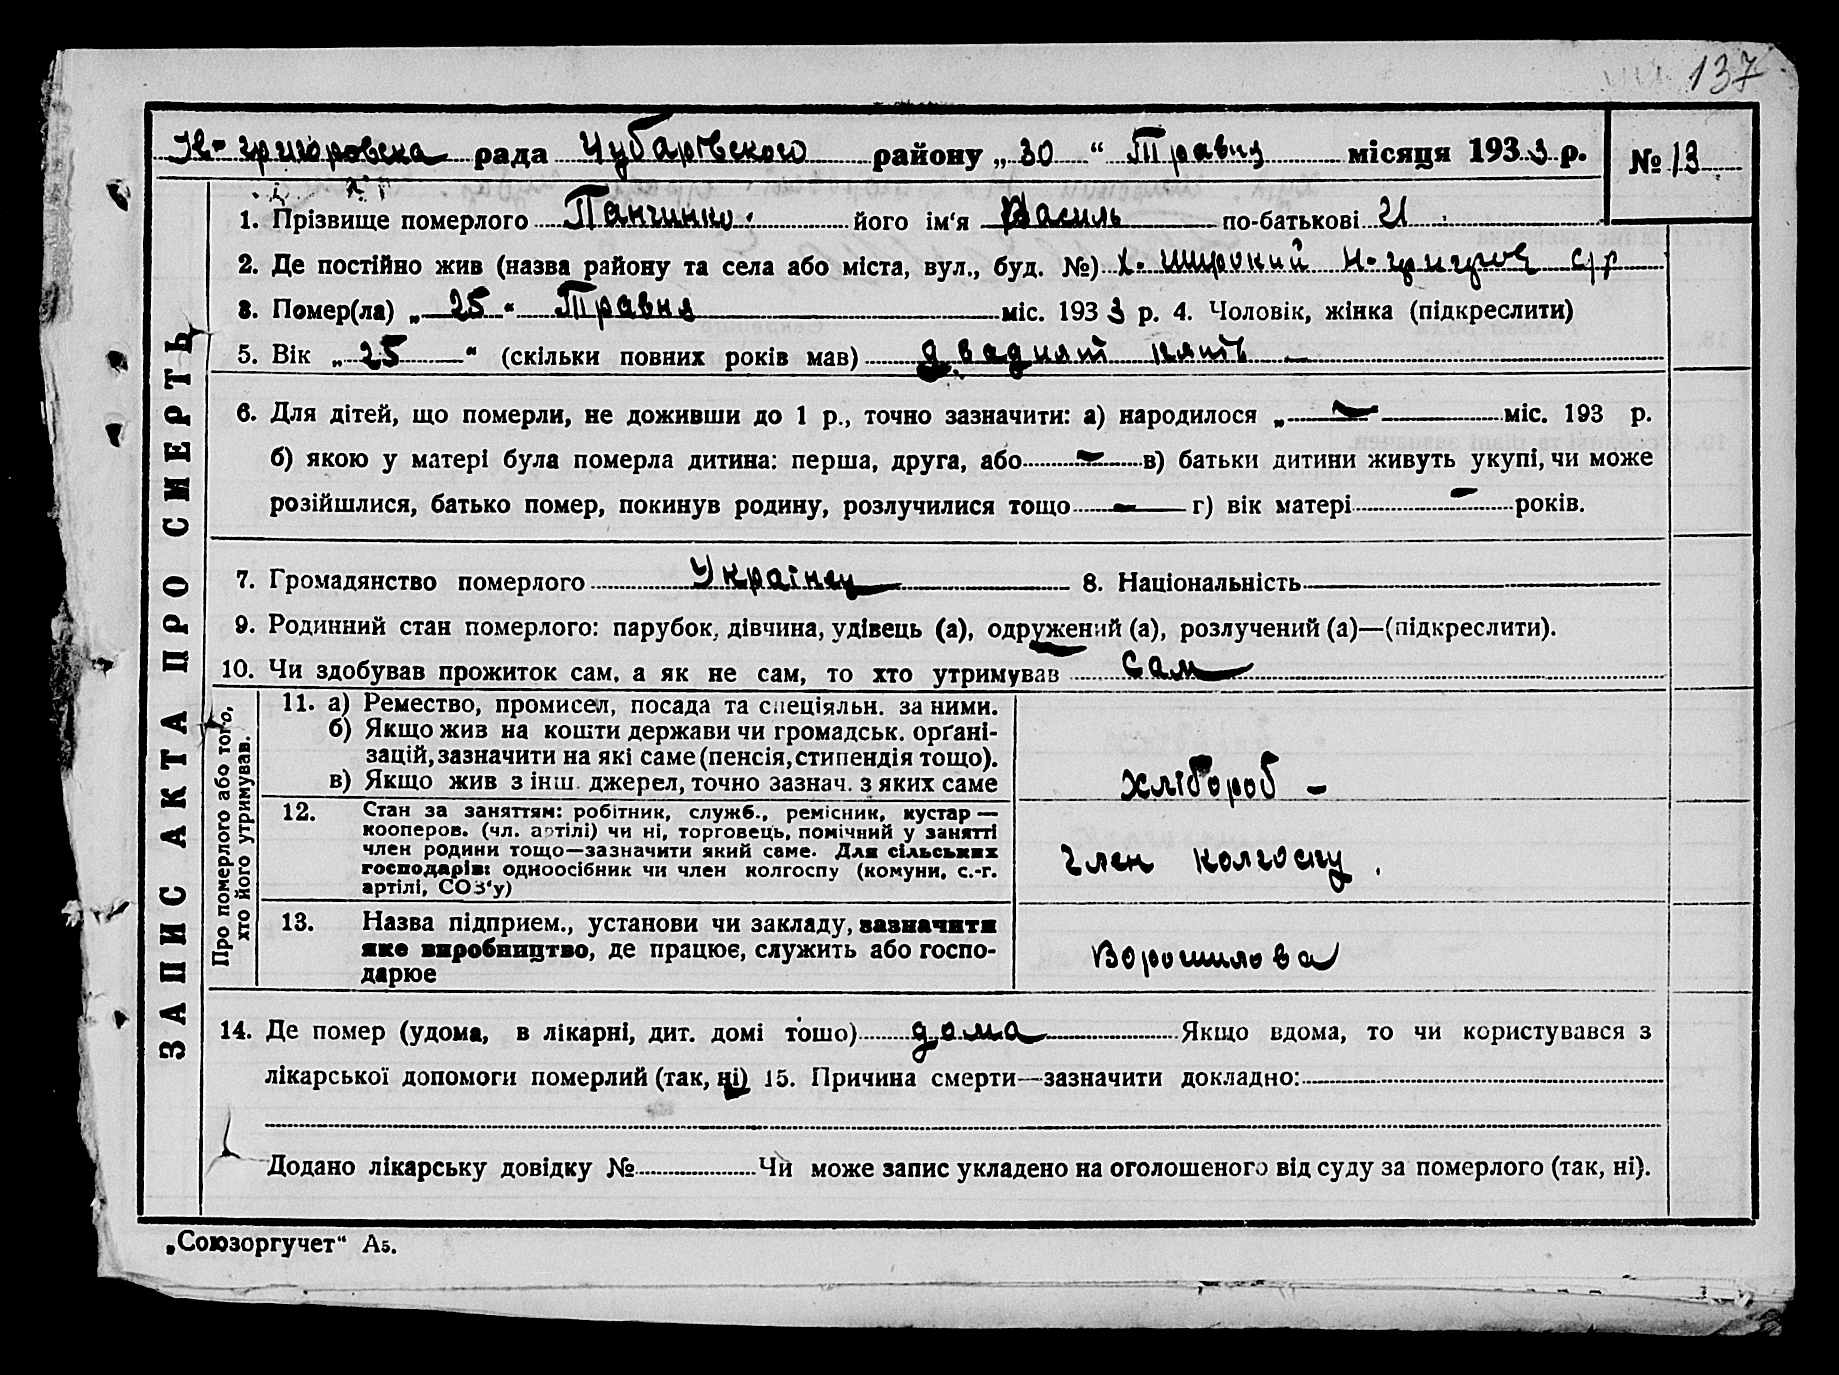 137
Н-григоровска рада Чубарівского району „30“ Травня місяця 1933 р. № 13
1. Прізвище померлого Панчинко його ім‘я Василь по-батькові
2. Де постійно жив (назва району та села або міста, вул., буд. №) х. широкий с/р
3. Помер(ла) „25“ Травня міс. 1933 р. 4. Чоловік, жінка (підкреслити)
5. Вік „25“ (скільки повних років мав) двадцят пять —
6. Для дітей, що померли, не доживши до 1 р., точно зазначити: а) народилося „— міс. 193 р.
б) якою у матері була померла дитина: перша, друга, або — в) батьки дитини живуть укупі, чи може
розійшлися, батько помер, покинув родину, розлучилися тощо — г) вік матері — років.
7. Громадянство померлого Українец 8. Національність
9. Родинний стан померлого: парубок, дівчина, удівець (а), одружений (а), розлучений (а)—(підкреслити).
10. Чи здобував прожиток сам, а як не сам, то хто утримував Сам
11. а) Ремество, промисел, посада та спеціяльн. за ними.
б) Якщо жив на кошти держави чи громадськ. орґані-
зацій, зазначити на які саме (пенсія, стипендія тощо).
в) Якщо жив з інш. джерел, точно зазнач. з яких саме
хлібороб –
12. Стан за заняттям: робітник, служб., ремісник, кустар —
кооперов. (чл. артілі) чи ні, торговець, помічний у занятті
член родини тощо—зазначити який саме. Для сільських
господарів: одноосібник чи член колгоспу (комуни, с.-г.
артілі, СОЗ‘у)
член колгоспу.
13. Назва підприєм., установи чи закладу, зазначити
яке виробництво, де працює, служить або госпо-
дарює
Ворошилова
14. Де помер (удома, в лікарні, дит. домі тошо) дома Якщо вдома, то чи користувався з
лікарської допомоги померлий (так, ні) 15. Причина смерти—зазначити докладно:
Додано лікарську довідку № Чи може запис укладено на оголошеного від суду за померлого (так, ні).
ЗАПИС АКТА ПРО СМЕРТЬ
Про померлого або того,
хто його утримував.
„Союзоргучет“ А5.